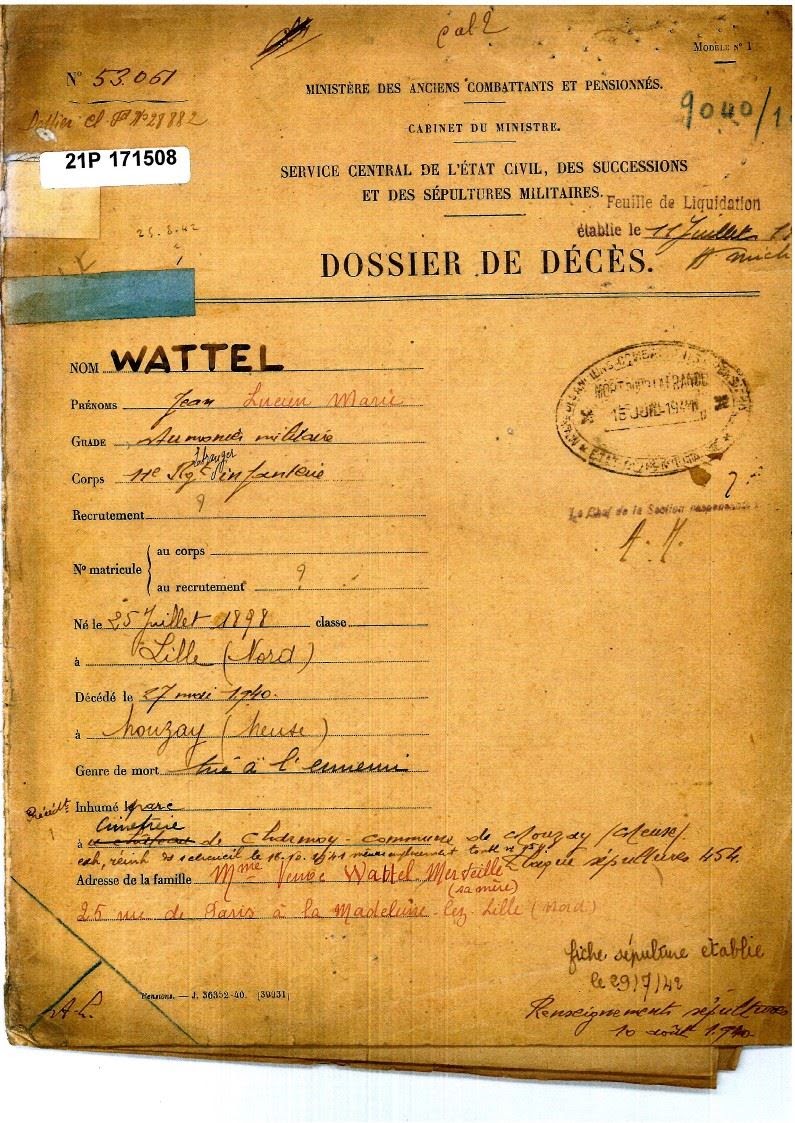 cal 2
MODÈLE N° 1
N° 53.061
Dossier Cl. Pl N° 28882
21P 171508
MINISTÈRE DES ANCIENS COMBATTANTS ET PENSIONNÉS.
9040/1
CABINET DU MINISTRE.
SERVICE CENTRAL DE L'ÉTAT CIVIL, DES SUCCESSIONS
ET DES SÉPULTURES MILITAIRES.
Feuille de Liquidation
établie le 11 Juillet
25.8.42
DOSSIER DE DÉCÈS.
NOM WATTEL
PRÉNOMS Jean Lucien Marie
GRADE Aumonier militaire
Corps 11e Rgt étranger infanterie
Recrutement ?
N° matricule
au corps
au recrutement ?
MORT POUR LA FRANCE
15 JUIL 1941
Le Chef de la Section responsable
A. M.
Né le 25 Juillet 1898 classe
à Lille (Nord)
Décédé le 27 mai 1940.
à Mouzay (Meuse)
Genre de mort tué à l'ennemi
Inhumé parc
Cimetière
à de Charmoy - commune de Mouzay (Meuse)
cercueil le 16.10.1941 même emplacement tombe
Plaque sépultures 454.
Adresse de la famille Mme Veuve Wattel-Merveille
(sa mère)
25 rue de Paris à la Madeleine-lez-Lille (Nord)
fiche sépulture établie
le 29/7/42
Pensions. — J. 36352-40. [39931]
A.L.
Renseignements sépultures
10 août 1940